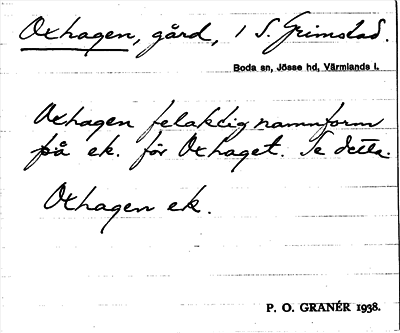 Oxhagen, gård, i S. Grimstad.
Boda sn, Jösse hd, Värmlands l.
Oxhagen felaktig namnform
på ek. för Oxhaget. Se detta.
Oxhagen ek.
P. O. GRANÉR 1938.